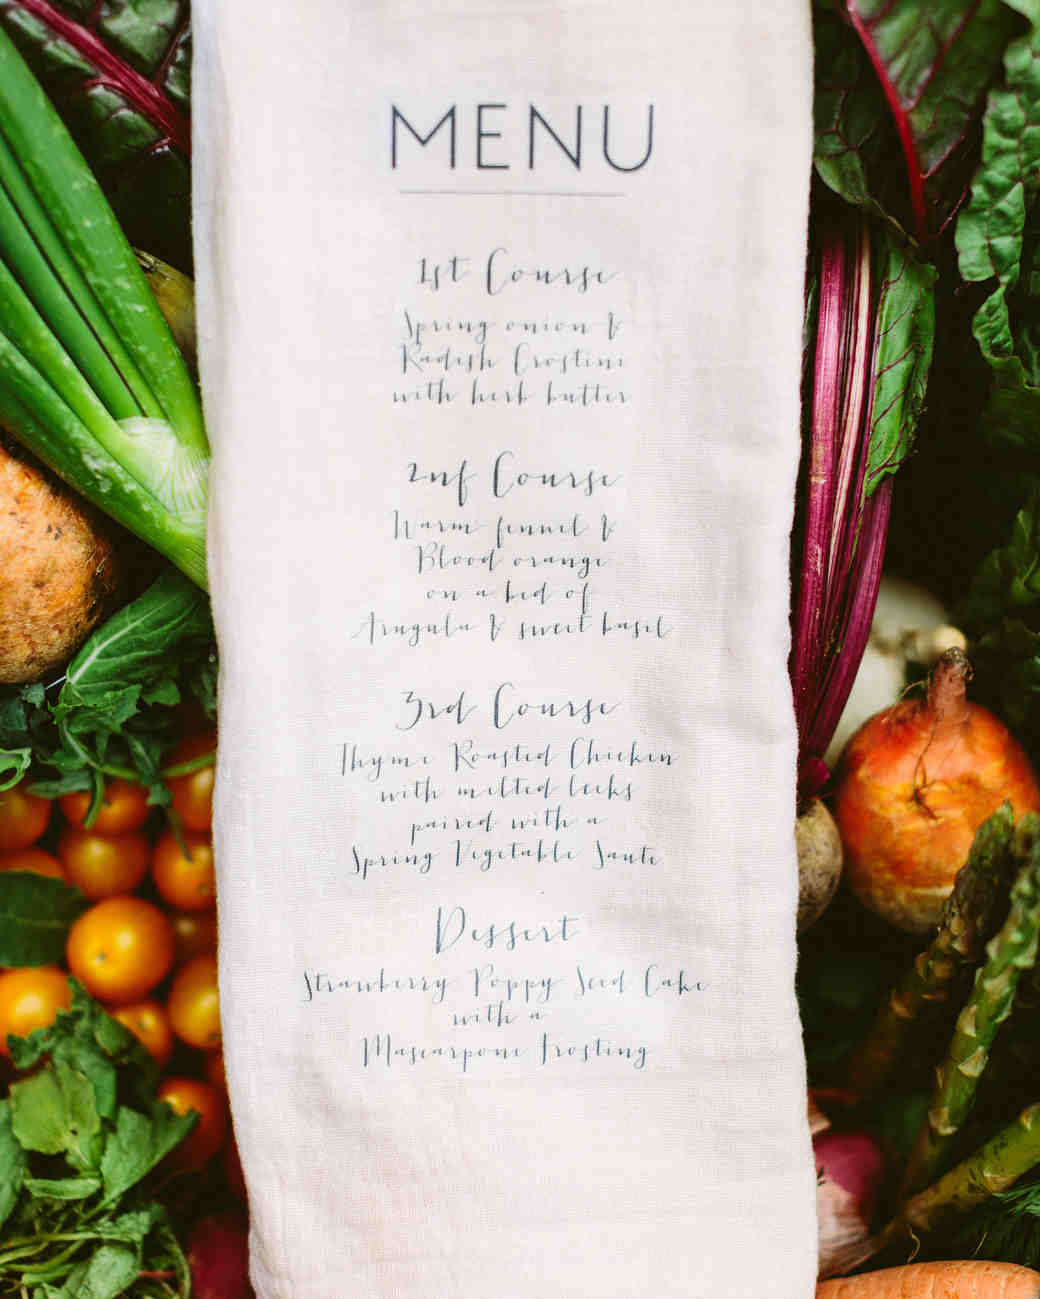 MENU
1st Course
Spring onion &
Radish Crostini
with herb butter
2nf Course
Warm fennel &
Blood orange
on a bed of
Arugula & sweet basil
3rd Course
Thyme Roasted Chicken
with melted leeks
paired with a
Spring Vegetable Saute
Dessert
Strawberry Poppy Seed Cake
with a
Mascarpone Frosting